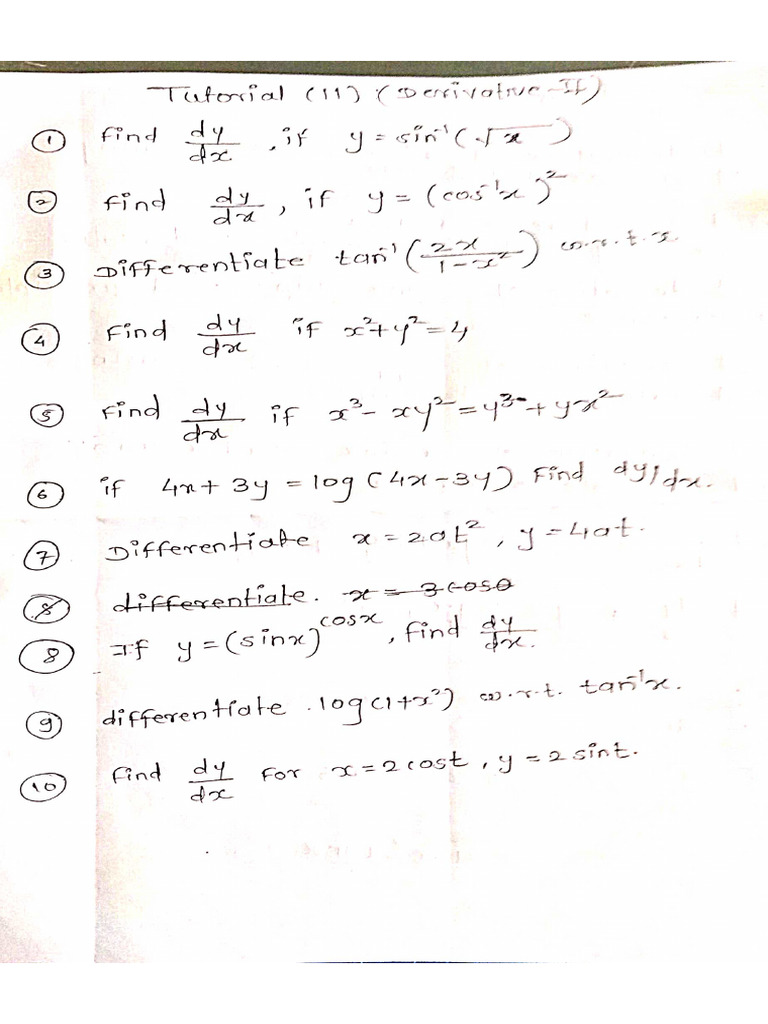 Tutorial (11) (Derivative-II)
① Find dy/dx, if y = sin⁻¹(√x)
② Find dy/dx, if y = (cos⁻¹x)²
③ Differentiate tan⁻¹(2x/1-x²) w.r.t.x.
④ Find dy/dx if x²+y²=4
⑤ Find dy/dx if x³- xy²=y³+yx²
⑥ if 4x+3y = log(4x-3y) Find dy/dx.
⑦ Differentiate x = 2at², y=4at.
⑧ differentiate. x = 3cosθ
⑧ If y=(sinx)^cosx, find dy/dx.
⑨ differentiate .log(1+x²) w.r.t. tan⁻¹x.
⑩ Find dy/dx For x=2cost, y=2sint.